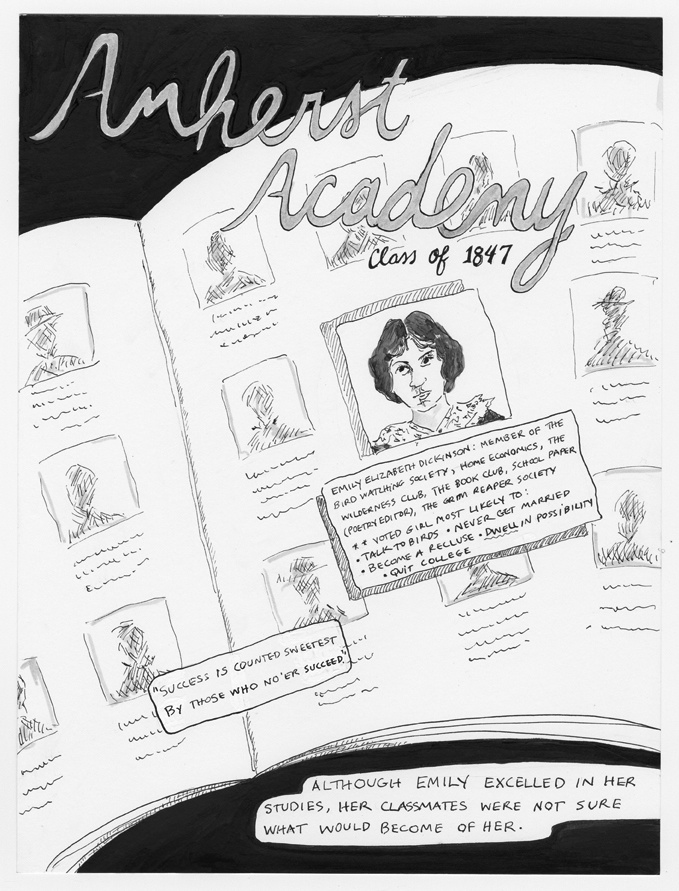 Amherst
Academy
Class of 1847
EMILY ELIZABETH DICKINSON: MEMBER OF THE
BIRD WATCHING SOCIETY, HOME ECONOMICS, THE
WILDERNESS CLUB, THE BOOK CLUB, SCHOOL PAPER
(POETRY EDITOR), THE GRIM REAPER SOCIETY
* * VOTED GIRL MOST LIKELY TO:
• TALK TO BIRDS • NEVER GET MARRIED
• BECOME A RECLUSE • DWELL IN POSSIBILITY
• QUIT COLLEGE
"SUCCESS IS COUNTED SWEETEST
BY THOSE WHO NO'ER SUCCEED."
ALTHOUGH EMILY EXCELLED IN HER
STUDIES, HER CLASSMATES WERE NOT SURE
WHAT WOULD BECOME OF HER.